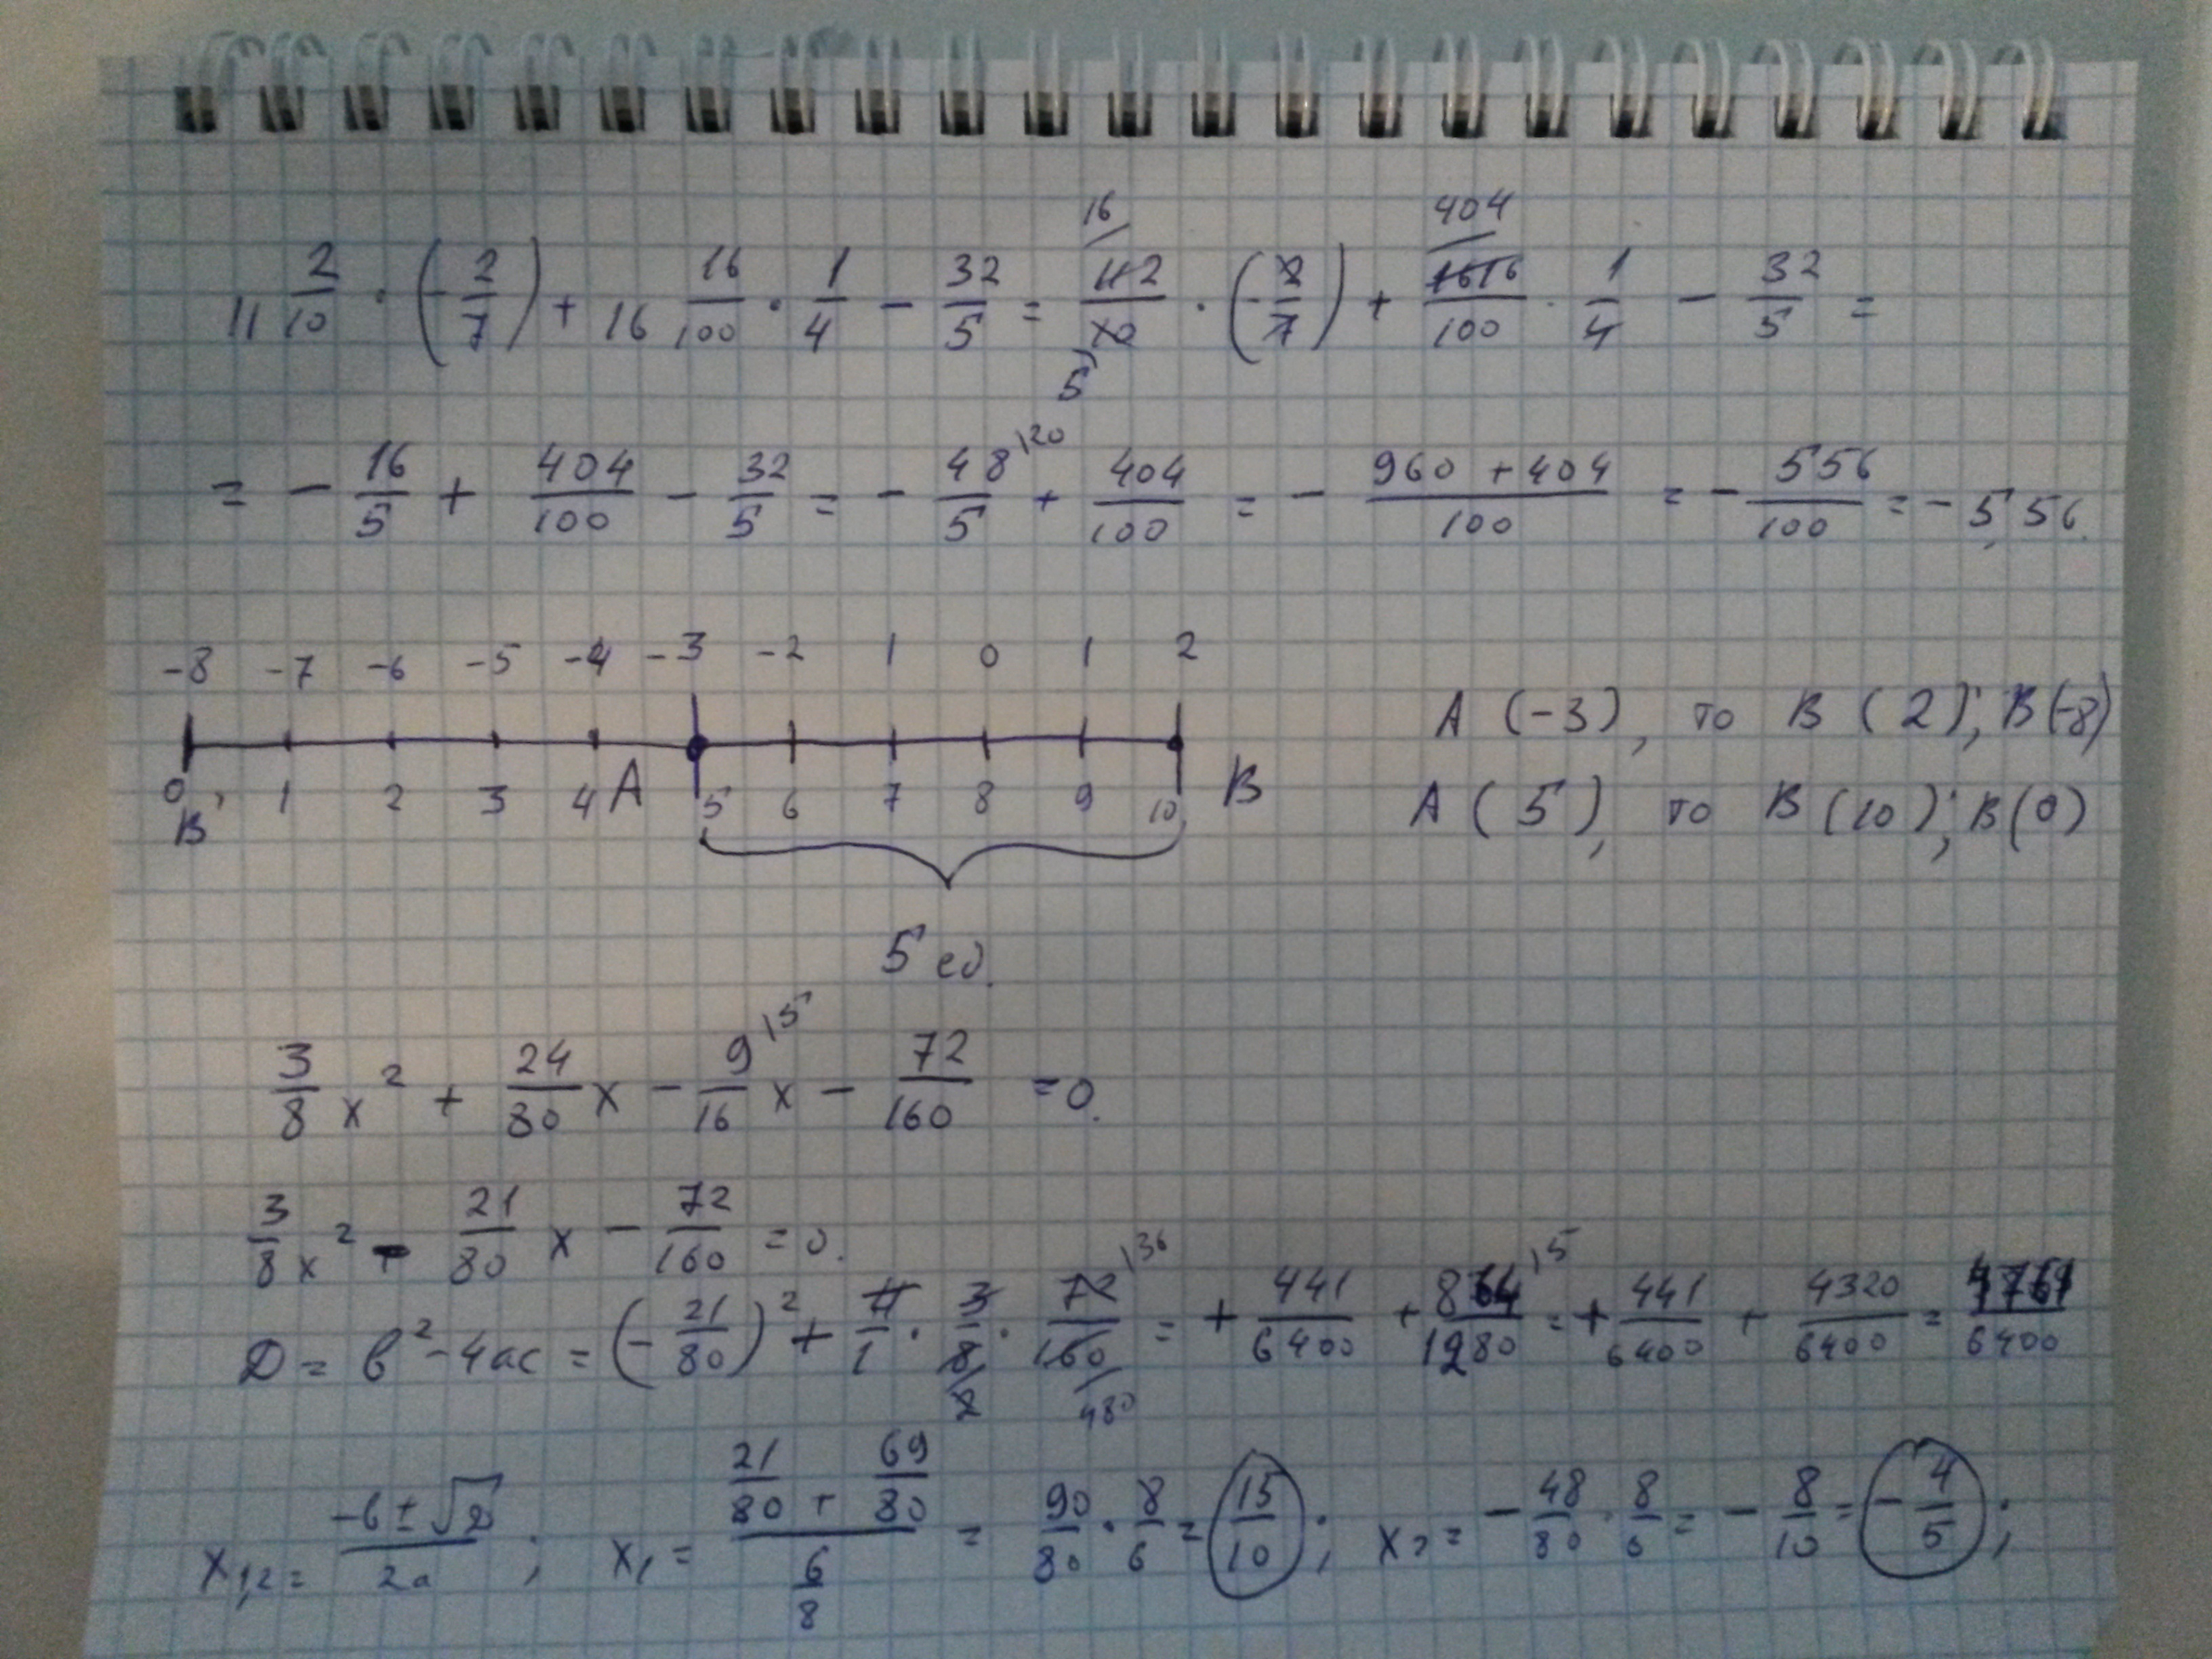 16 404
11 2/10 · (-2/7) + 16 16/100 · 1/4 - 32/5 = 112/10 · (-2/7) + 1616/100 · 1/4 - 32/5 =
5
= - 16/5 + 404/100 - 32/5 = - 48/5 \20 + 404/100 = - 960 + 404/100 = - 556/100 = - 5,56.
-8 -7 -6 -5 -4 -3 -2 1 0 1 2
A (-3), то B (2); B(-8)
0, 1 2 3 4 A 5 6 7 8 9 10 B
B
A (5), то B (10); B(0)
5 ед.
3/8 x² + 24/80 x - 9/16 \5 x - 72/160 = 0.
3/8 x² - 21/80 x - 72/160 = 0.
D = b² - 4ac = (-21/80)² + 4/1 · 3/8 · 72/160 \36 = + 441/6400 + 864/1280 \5 = + 441/6400 + 4320/6400 = 4761/6400
2 480
x1,2 = -b ± √D/2a ; x1 = 21/80 + 69/80 / 6/8 = 90/80 · 8/6 = 15/10 ; x2 = - 48/80 · 8/6 = - 8/10 = - 4/5 ;